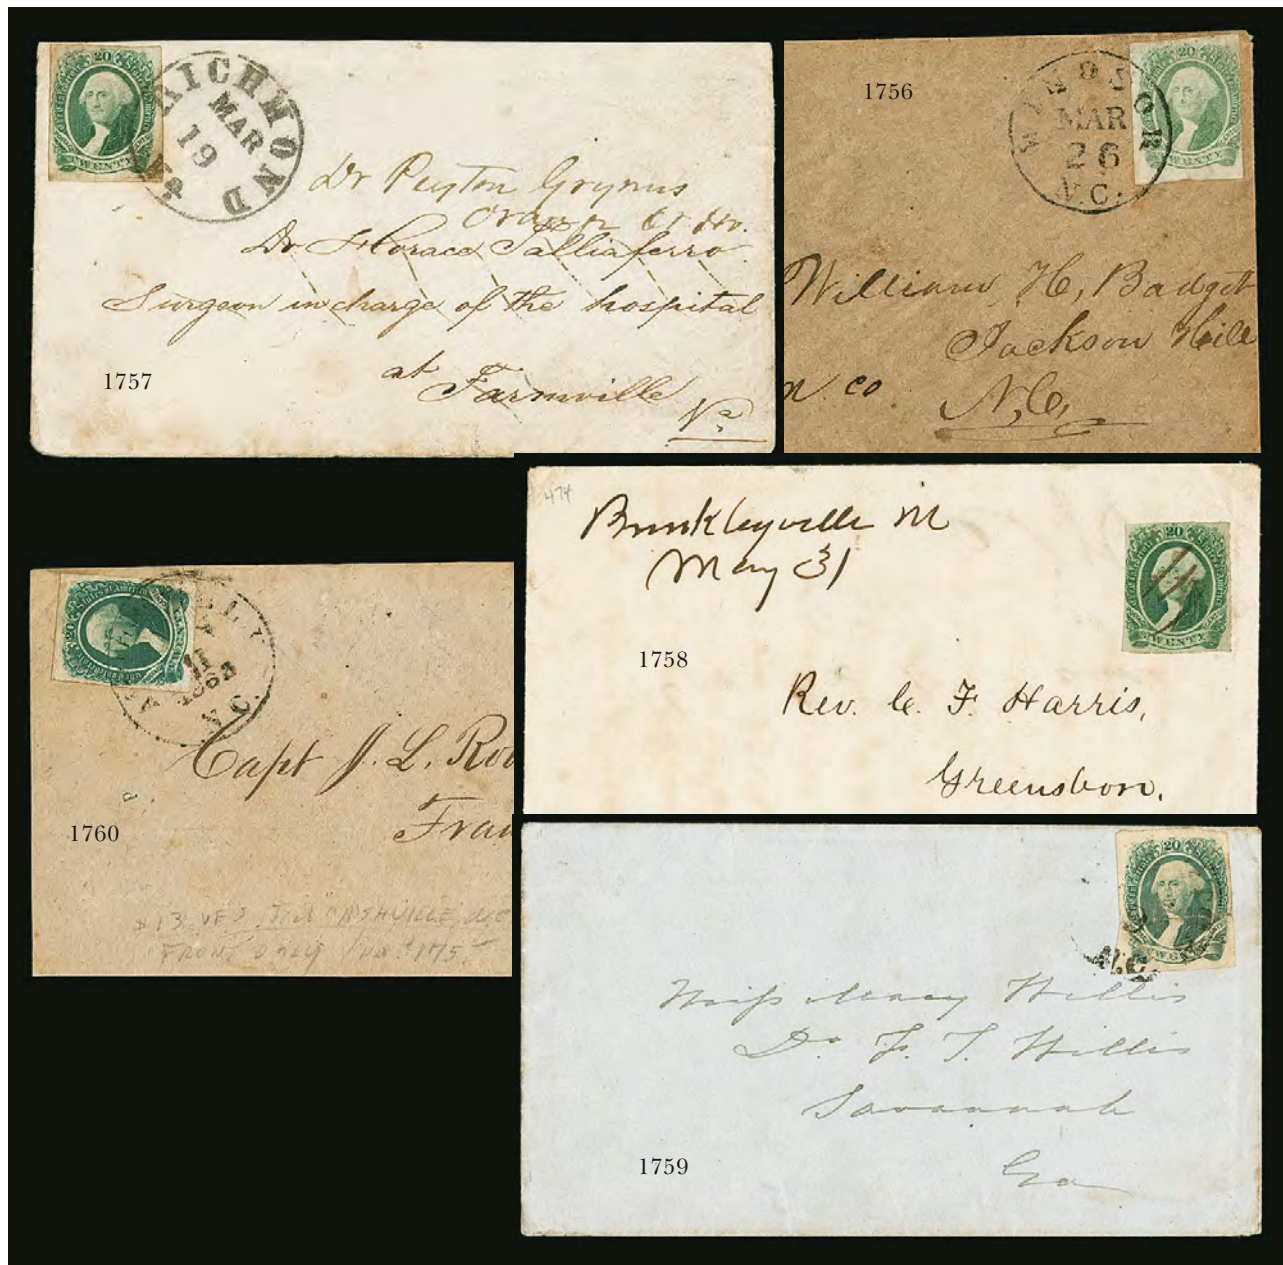 20
TWENTY
RICHMOND
MAR
19
Dr Peyton Grymes
Orange Ct Ho.
Dr Horace Talliaferro
Surgeon in charge of the hospital
at Farmville
Va
1757
1756
20
TWENTY
WINDSOR
MAR
26
N.C.
William H, Badget
Jackson Hill
n co
N,C,
474
Brinkleyville
May 31
20
TWENTY
1658
Rev. C. F. Harris,
Greensboro,
20
States of America
11
N.C.
Capt J. L. Ro
Fran
1760
NASHVILLE, N.C.
FRONT ONLY
20
N.C.
Miss Mary Willis
Dr F. T. Willis
Savannah
Ga
1759